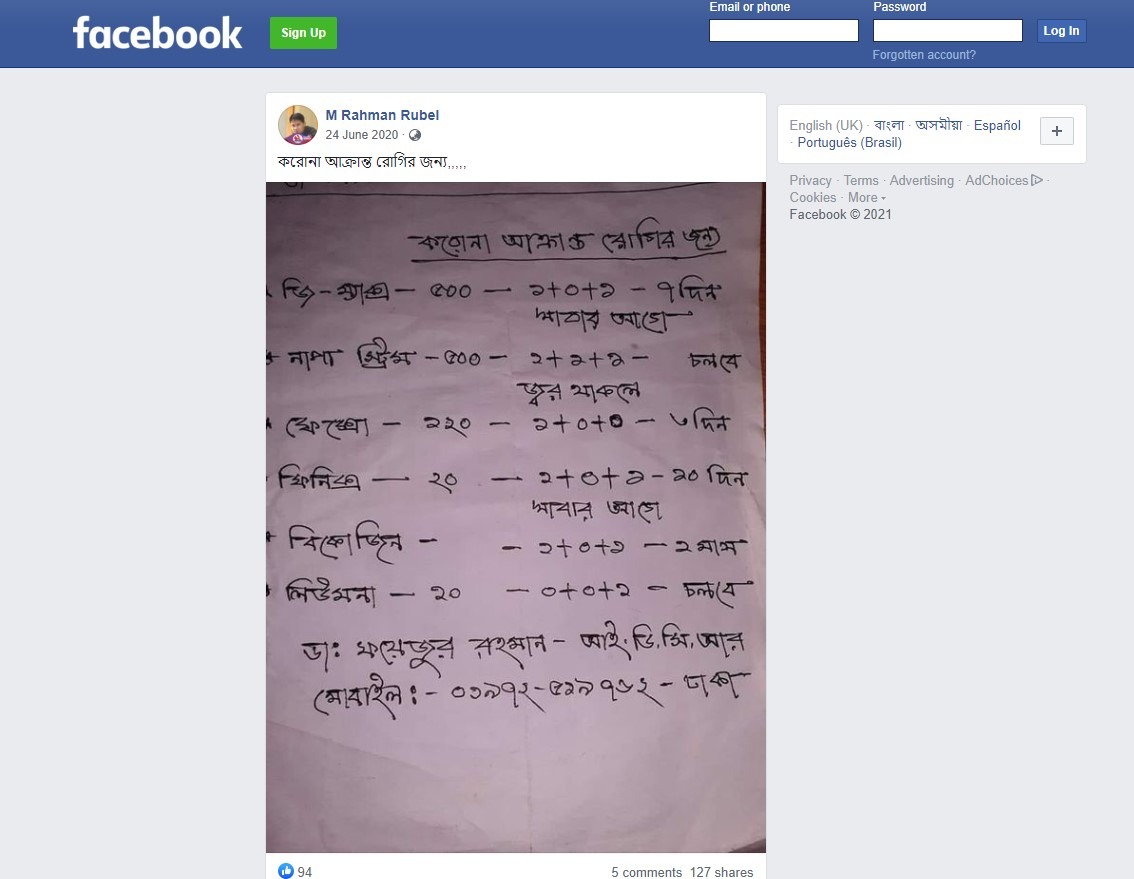 facebook
Sign Up
Email or phone
Password
Log In
Forgotten account?
M Rahman Rubel
24 June 2020 ·
করোনা আক্রান্ত রোগির জন্য,,,,,
করোনা আক্রান্ত রোগির জন্য
জি-ম্যাক্স — ৫০০ — ১+০+১ – ৭ দিন
খাবার আগে
নাপা — ৫০০ — ২+২+২ — চলবে
জ্বর থাকলে
ফেক্সো — ১২০ — ১+০+০ — দিন
ফিনিক্স — ২০ — ১+০+১ — ২০ দিন
খাবার আগে
বিকোজিন — — ১+০+১ — ২ মাস
লিউমনা — ১০ — ০+০+১ — চলবে
ডা: ফয়েজুর রহমান – আই.ডি.সি.আর
মোবাইল: – ঢাকা
94
5 comments 127 shares
English (UK) · বাংলা · অসমীয়া · Español
· Português (Brasil)
+
Privacy · Terms · Advertising · AdChoices ·
Cookies · More
Facebook © 2021